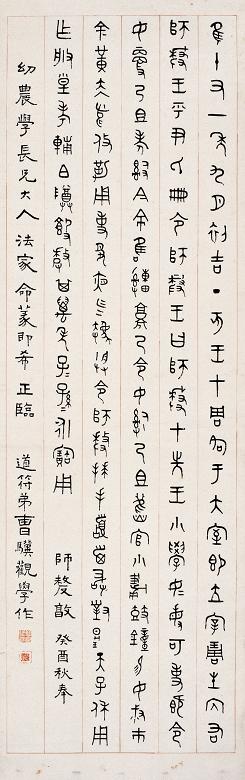 隹十又一年九月初吉丁亥王才周各于大室即立宰琱生内右
師嫠王乎尹氏冊令師嫠王曰師嫠才先王小學女敏可事既令
女更乃且考司今余隹乃令女司乃且舊官小輔鼓鐘易女叔巿
金黃赤舄攸勒用事敬夙夜勿灋朕令師嫠拜手稽首敢對皇天子休用
乍朕皇考輔白尊簋嫠其萬年子子孫孫永寶用 師嫠敦 癸酉秋奉
幼農學長兄大人法家命篆即希正臨 道符弟曹驥觀學作